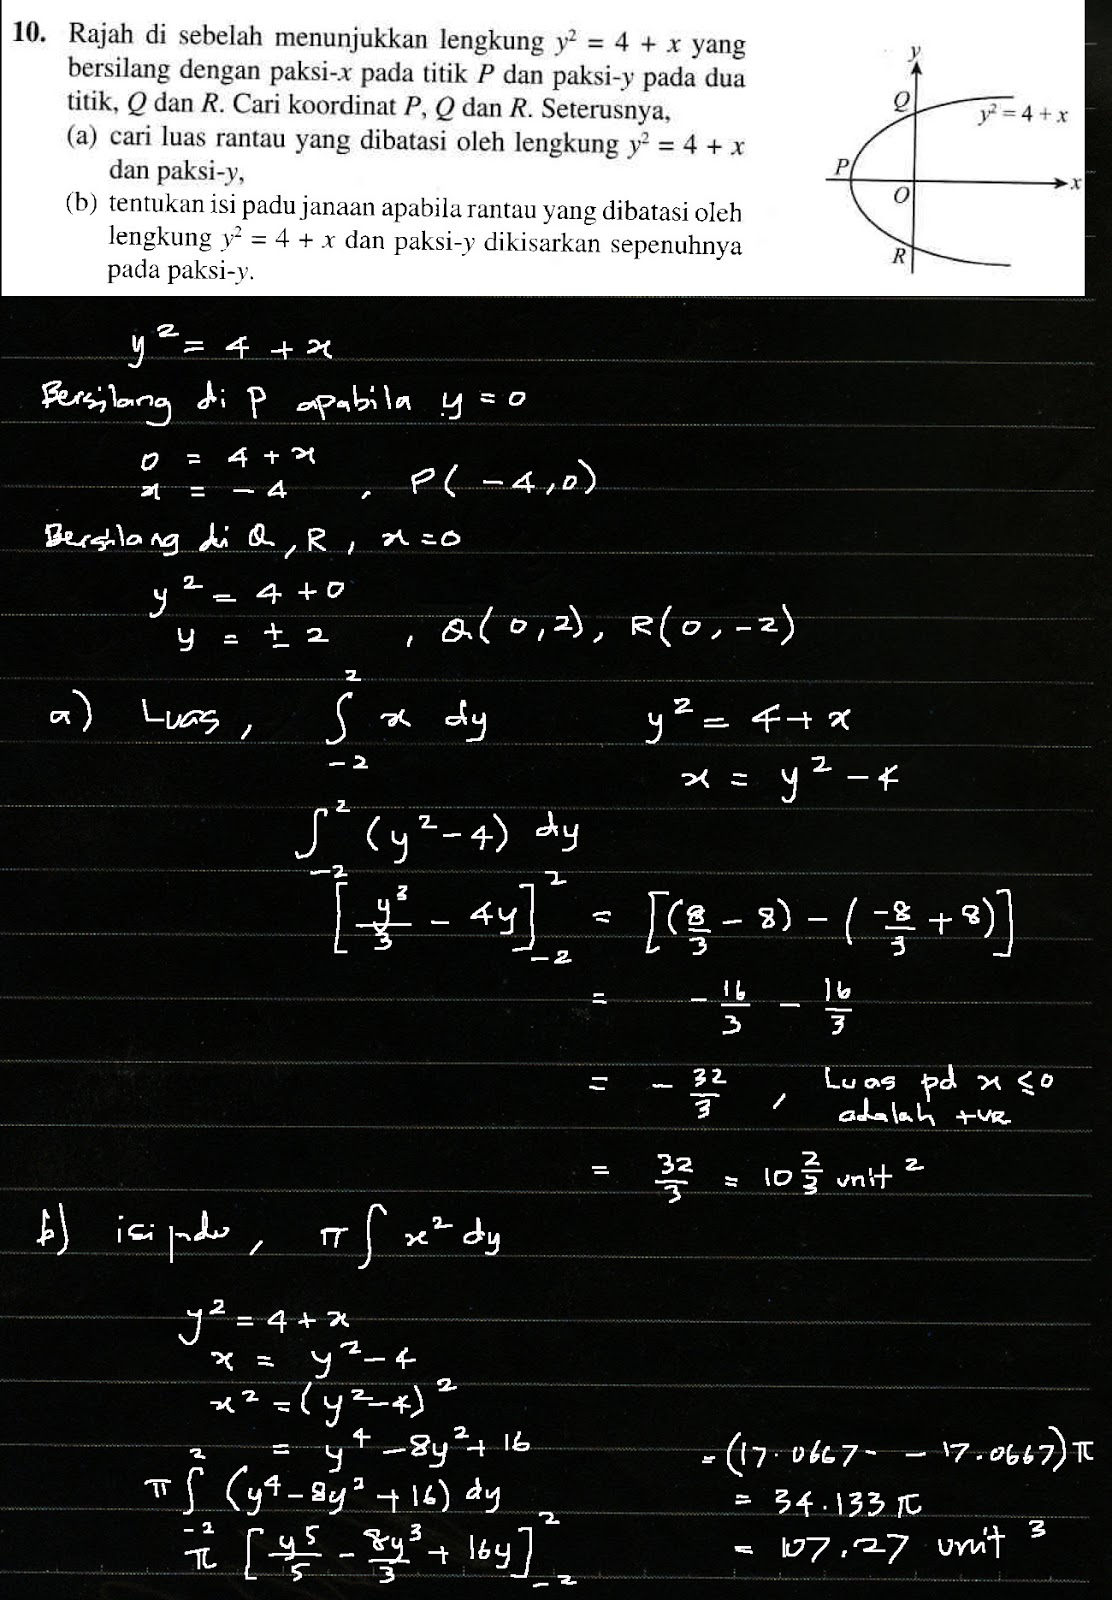 10. Rajah di sebelah menunjukkan lengkung y² = 4 + x yang
bersilang dengan paksi-x pada titik P dan paksi-y pada dua
titik, Q dan R. Cari koordinat P, Q dan R. Seterusnya,
(a) cari luas rantau yang dibatasi oleh lengkung y² = 4 + x
dan paksi-y,
(b) tentukan isi padu janaan apabila rantau yang dibatasi oleh
lengkung y² = 4 + x dan paksi-y dikisarkan sepenuhnya
pada paksi-y.
y
Q
y² = 4 + x
P
x
O
R
y² = 4 + x
Bersilang di P apabila y = 0
0 = 4 + x
x = -4 , P( -4,0)
Bersilang di Q, R, x=0
y² = 4 + 0
y = ± 2 , Q( 0,2), R(0,-2)
a) Luas, ∫₋₂² x dy y² = 4 + x
x = y² - 4
∫₋₂² (y² - 4) dy
[y³/3 - 4y]₋₂² = [(8/3 - 8) - (-8/3 + 8)]
= - 16/3 - 16/3
= - 32/3 , Luas pd x ≤ 0
adalah +ve
= 32/3 = 10 2/3 unit²
b) isi padu, π∫x² dy
y² = 4 + x
x = y² - 4
x² = (y² - 4)²
= y⁴ - 8y² + 16
π∫₋₂² (y⁴ - 8y² + 16) dy
π [y⁵/5 - 8y³/3 + 16y]₋₂²
= (17.0667 - - 17.0667)π
= 34.133 π
= 107.27 unit³